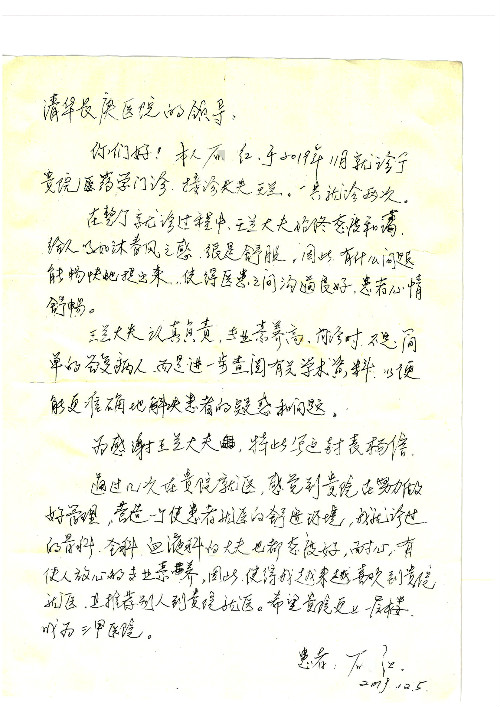 清华长庚医院的领导，
你们好！本人石 红，于2019年11月就诊于
贵院医药学门诊，接诊大夫王兰。一共就诊两次。
在整个就诊过程中，王兰大夫的修态度和蔼，
给人以如沐春风之感，很是舒服，因此，有什么问题
能畅快地提出来，使得医患之间沟通良好，患者心情
舒畅。
王兰大夫认真负责，专业素养高，问诊时，不是简
单的答复病人，而是进一步查阅有关学术资料，以便
能更准确地解决患者的疑惑和问题。
为感谢王兰大夫，特此写这封表扬信。
通过几次在贵院就医，感觉到贵院在努力做
好管理，营造一个使患者就医的舒适环境，我就诊过
的骨科、全科、血液科的大夫也都态度好，耐心，有
使人放心的专业素养，因此，使得我越来越喜欢到贵院
就医，且推荐别人到贵院就医。希望贵院更上一层楼，
成为三甲医院。
患者：石 红
2019.12.5.